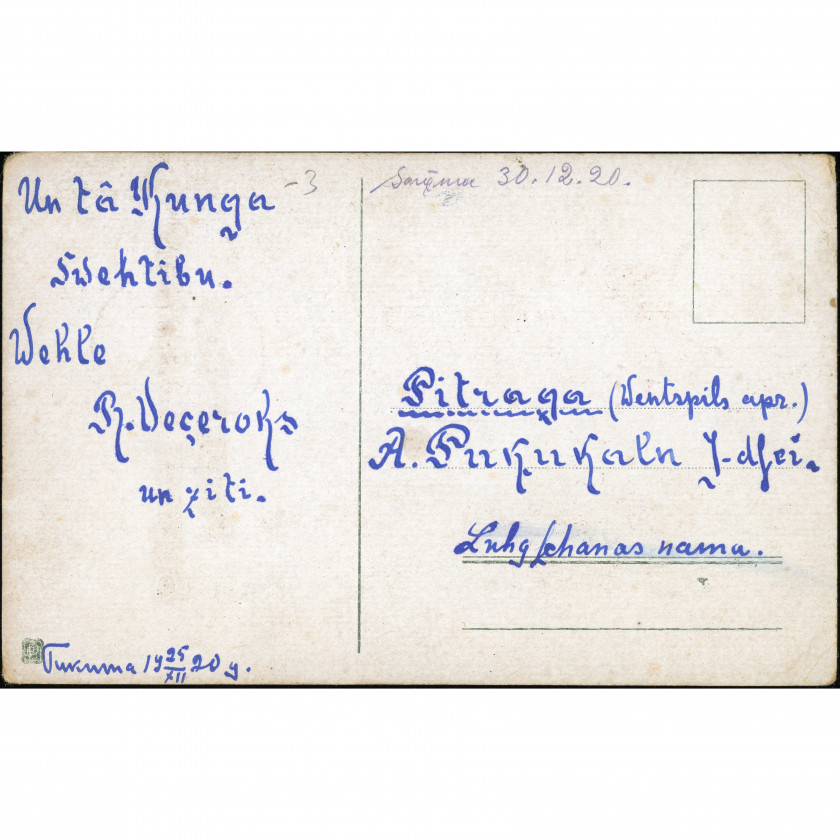 Un tā Kunga
Swehtibu.
Wehle
R. Veçeroks
un ziti.
Tukuma 19 25/XII 20 g.
-3
Saņēma 30.12.20.
Pitraga (Wentspils apr.)
A. Pukukaln J-dſei.
Luhgſchanas nama.